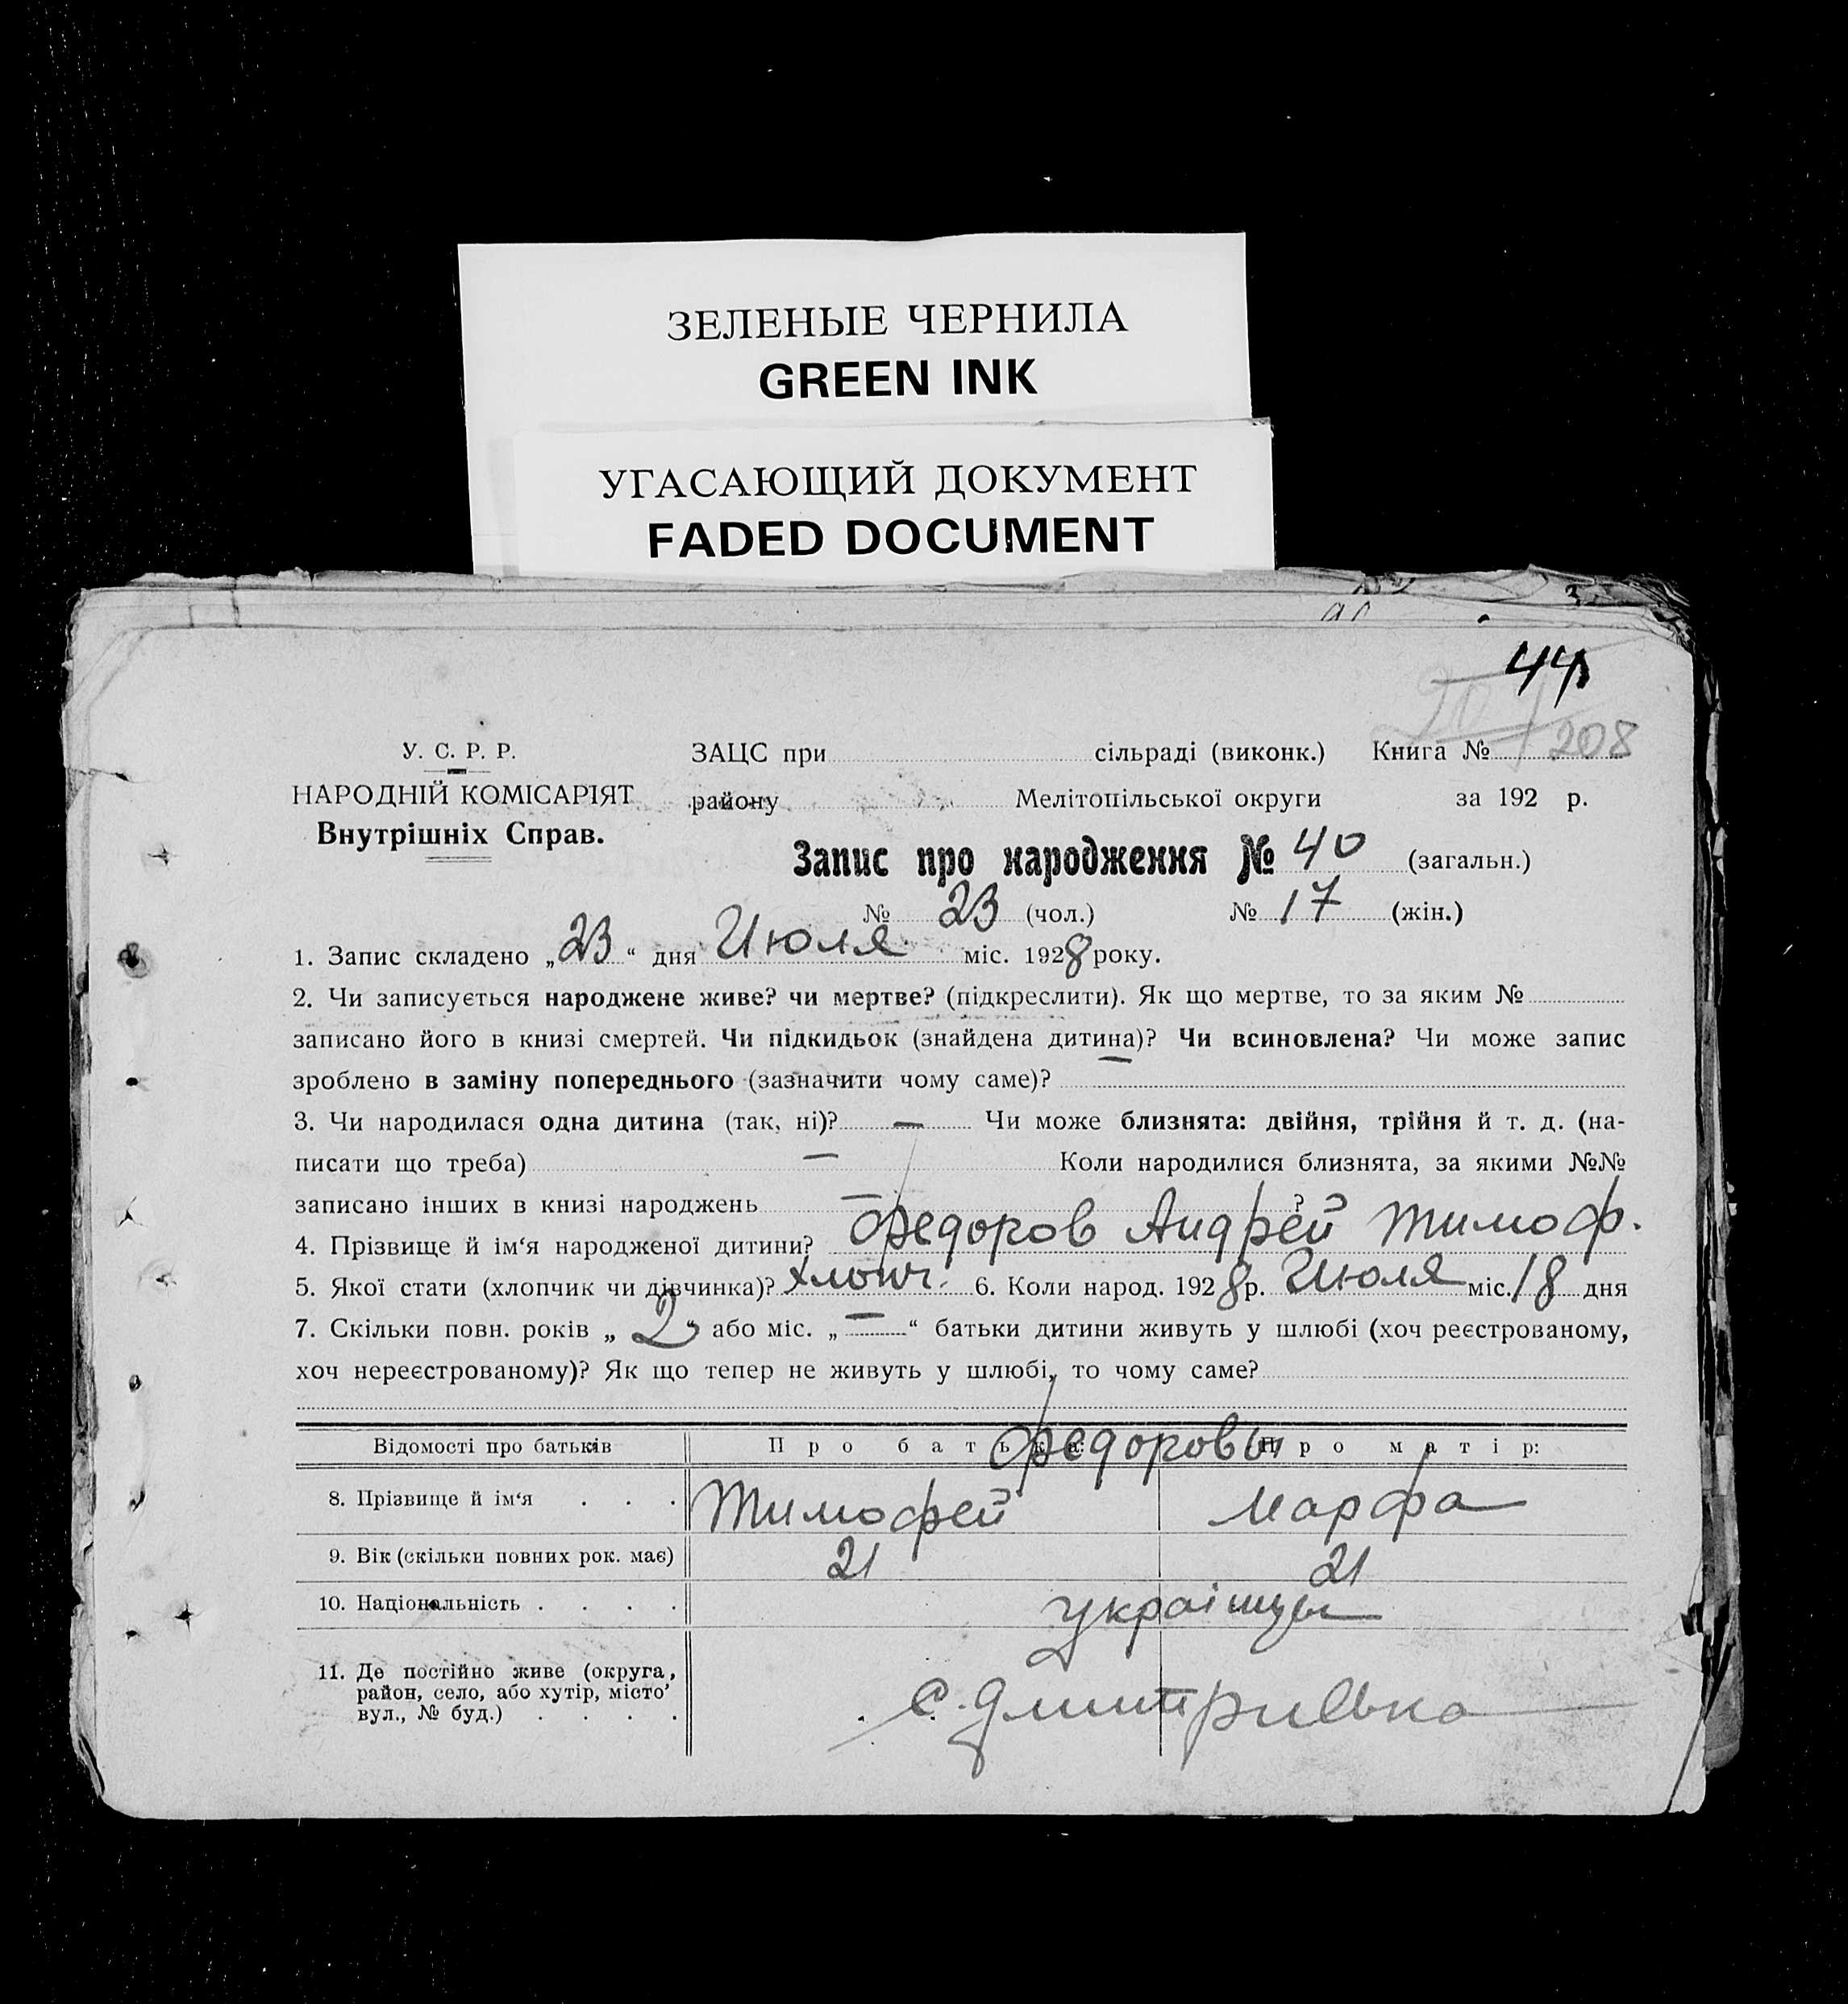 ЗЕЛЕНЫЕ ЧЕРНИЛА
GREEN INK
УГАСАЮЩИЙ ДОКУМЕНТ
FADED DOCUMENT
44
208
У. С. Р. Р.
НАРОДНІЙ КОМІСАРІЯТ
Внутрішніх Справ.
ЗАЦС при сільраді (виконк.) Книга №
району Мелітопільської округи за 192 р.
Запис про народження № 40 (загальн.)
№ 23 (чол.) № 17 (жін.)
1. Запис складено „23“ дня Июля міс. 1928 року.
2. Чи записується народжене живе? чи мертве? (підкреслити). Як що мертве, то за яким №
записано його в книзі смертей. Чи підкидьок (знайдена дитина)? Чи всиновлена? Чи може запис
зроблено в заміну попереднього (зазначити чому саме)? —
3. Чи народилася одна дитина (так, ні)? — Чи може близнята: двійня, трійня й т. д. (на-
писати що треба) — Коли народилися близнята, за якими №№
записано інших в книзі народжень — ?
4. Прізвище й ім‘я народженої дитини? Федоров Андрей Тимоф.
5. Якої стати (хлопчик чи дівчинка)? хлопч. 6. Коли народ. 1928 р. Июля міс. 18 дня
7. Скільки повн. років „2“ або міс. „—“ батьки дитини живуть у шлюбі (хоч реєстрованому,
хоч нереєстрованому)? Як що тепер не живуть у шлюбі, то чому саме?
Відомості про батьків Про батька: Про матір:
Федоровы
8. Прізвище й ім‘я . . . Тимофей Марфа
9. Вік (скільки повних рок. має) 21 21
10. Національність . . . . украінцы
11. Де постійно живе (округа,
район, село, або хутір, місто’
вул., № буд.) . . . . с. Дмитривка